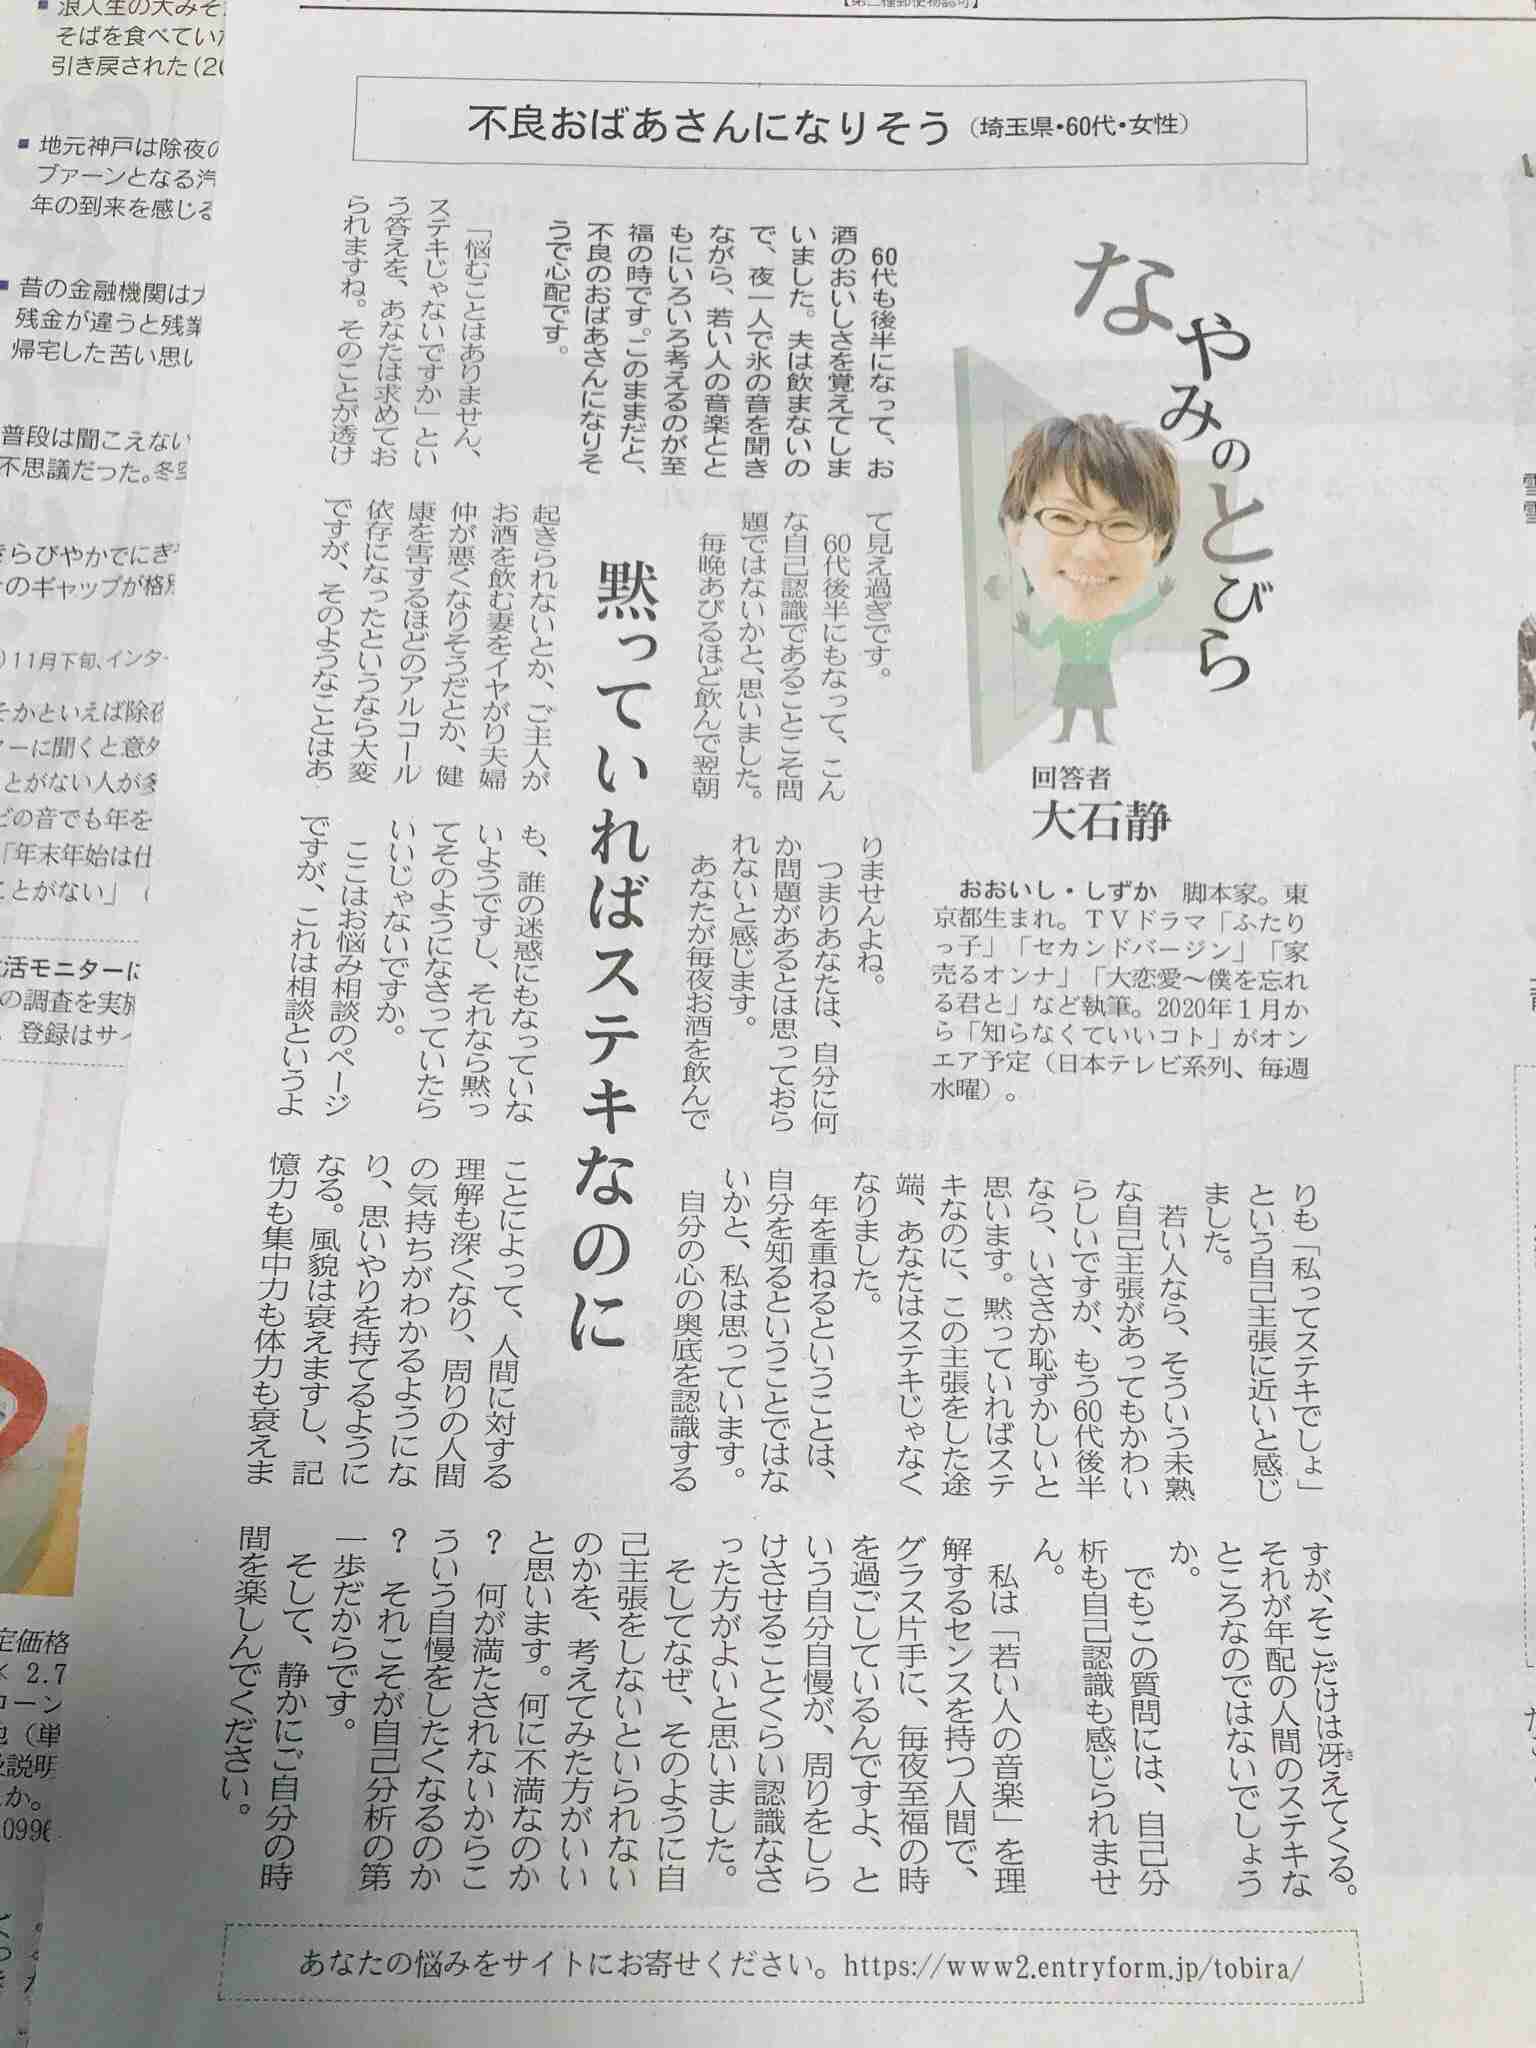 不良おばあさんになりそう（埼玉県・60代・女性）
なやみのとびら
回答者
大石静
おおいし・しずか　脚本家。東
京都生まれ。ＴＶドラマ「ふたり
っ子」「セカンドバージン」「家
売るオンナ」「大恋愛〜僕を忘れ
る君と」など執筆。2020年１月か
ら「知らなくていいコト」がオン
エア予定（日本テレビ系列、毎週
水曜）。
60代も後半になって、お
酒のおいしさを覚えてしま
いました。夫は飲まないの
で、夜一人で氷の音を聞き
ながら、若い人の音楽とと
もにいろいろ考えるのが至
福の時です。このままだと、
不良のおばあさんになりそ
うで心配です。
「悩むことはありません、
ステキじゃないですか」とい
う答えを、あなたは求めてお
られますね。そのことが透け
て見え過ぎです。
60代後半にもなって、こん
な自己認識であることこそ問
題ではないかと、思いました。
毎晩あびるほど飲んで翌朝
黙っていればステキなのに
起きられないとか、ご主人が
お酒を飲む妻をイヤがり夫婦
仲が悪くなりそうだとか、健
康を害するほどのアルコール
依存になったというなら大変
ですが、そのようなことはあ
りませんよね。
つまりあなたは、自分に何
か問題があるとは思っておら
れないと感じます。
あなたが毎夜お酒を飲んで
も、誰の迷惑にもなっていな
いようですし、それなら黙っ
てそのようになさっていたら
いいじゃないですか。
ここはお悩み相談のページ
ですが、これは相談というよ
りも「私ってステキでしょ」
という自己主張に近いと感じ
ました。
若い人なら、そういう未熟
な自己主張があってもかわい
らしいですが、もう60代後半
なら、いささか恥ずかしいと
思います。黙っていればステ
キなのに、この主張をした途
端、あなたはステキじゃなく
なりました。
年を重ねるということは、
自分を知るということではな
いかと、私は思っています。
自分の心の奥底を認識する
ことによって、人間に対する
理解も深くなり、周りの人間
の気持ちがわかるようにな
り、思いやりを持てるように
なる。風貌は衰えますし、記
憶力も集中力も体力も衰えま
すが、そこだけは冴えてくる。
さ
それが年配の人間のステキな
ところなのではないでしょう
か。
でもこの質問には、自己分
析も自己認識も感じられませ
ん。
私は「若い人の音楽」を理
解するセンスを持つ人間で、
グラス片手に、毎夜至福の時
を過ごしているんですよ、と
いう自分自慢が、周りをしら
けさせることくらい認識なさ
った方がよいと思いました。
そしてなぜ、そのように自
己主張をしないといられない
のかを、考えてみた方がいい
と思います。何に不満なのか
？　何が満たされないからこ
ういう自慢をしたくなるのか
？　それこそが自己分析の第
一歩だからです。
そして、静かにご自分の時
間を楽しんでください。
あなたの悩みをサイトにお寄せください。https://www2.entryform.jp/tobira/
浪人生の大みそ
そばを食べてい
引き戻された（20
地元神戸は除夜の
ブァーンとなる汽
年の到来を感じる
昔の金融機関は
残金が違うと残業
帰宅した苦い思い
普段は聞こえない
不思議だった。冬空
きらびやかでにぎ
のギャップが格別
）11月下旬、インター
そかといえば除夜
ターに聞くと意外
ことがない人が多
どの音でも年を
「年末年始は仕
ことがない」（
活モニターに
の調査を実施
登録はサイ
定価格
× 2.7
コーン
（単
説明
か。